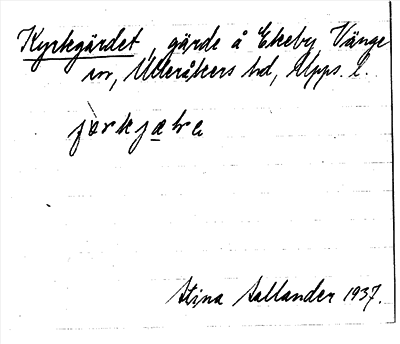 Kyrkgärdet, gärde å Ekeby, Vänge
sn, Ulleråkers hd, Upps. l.
Stina Hallander 1937.